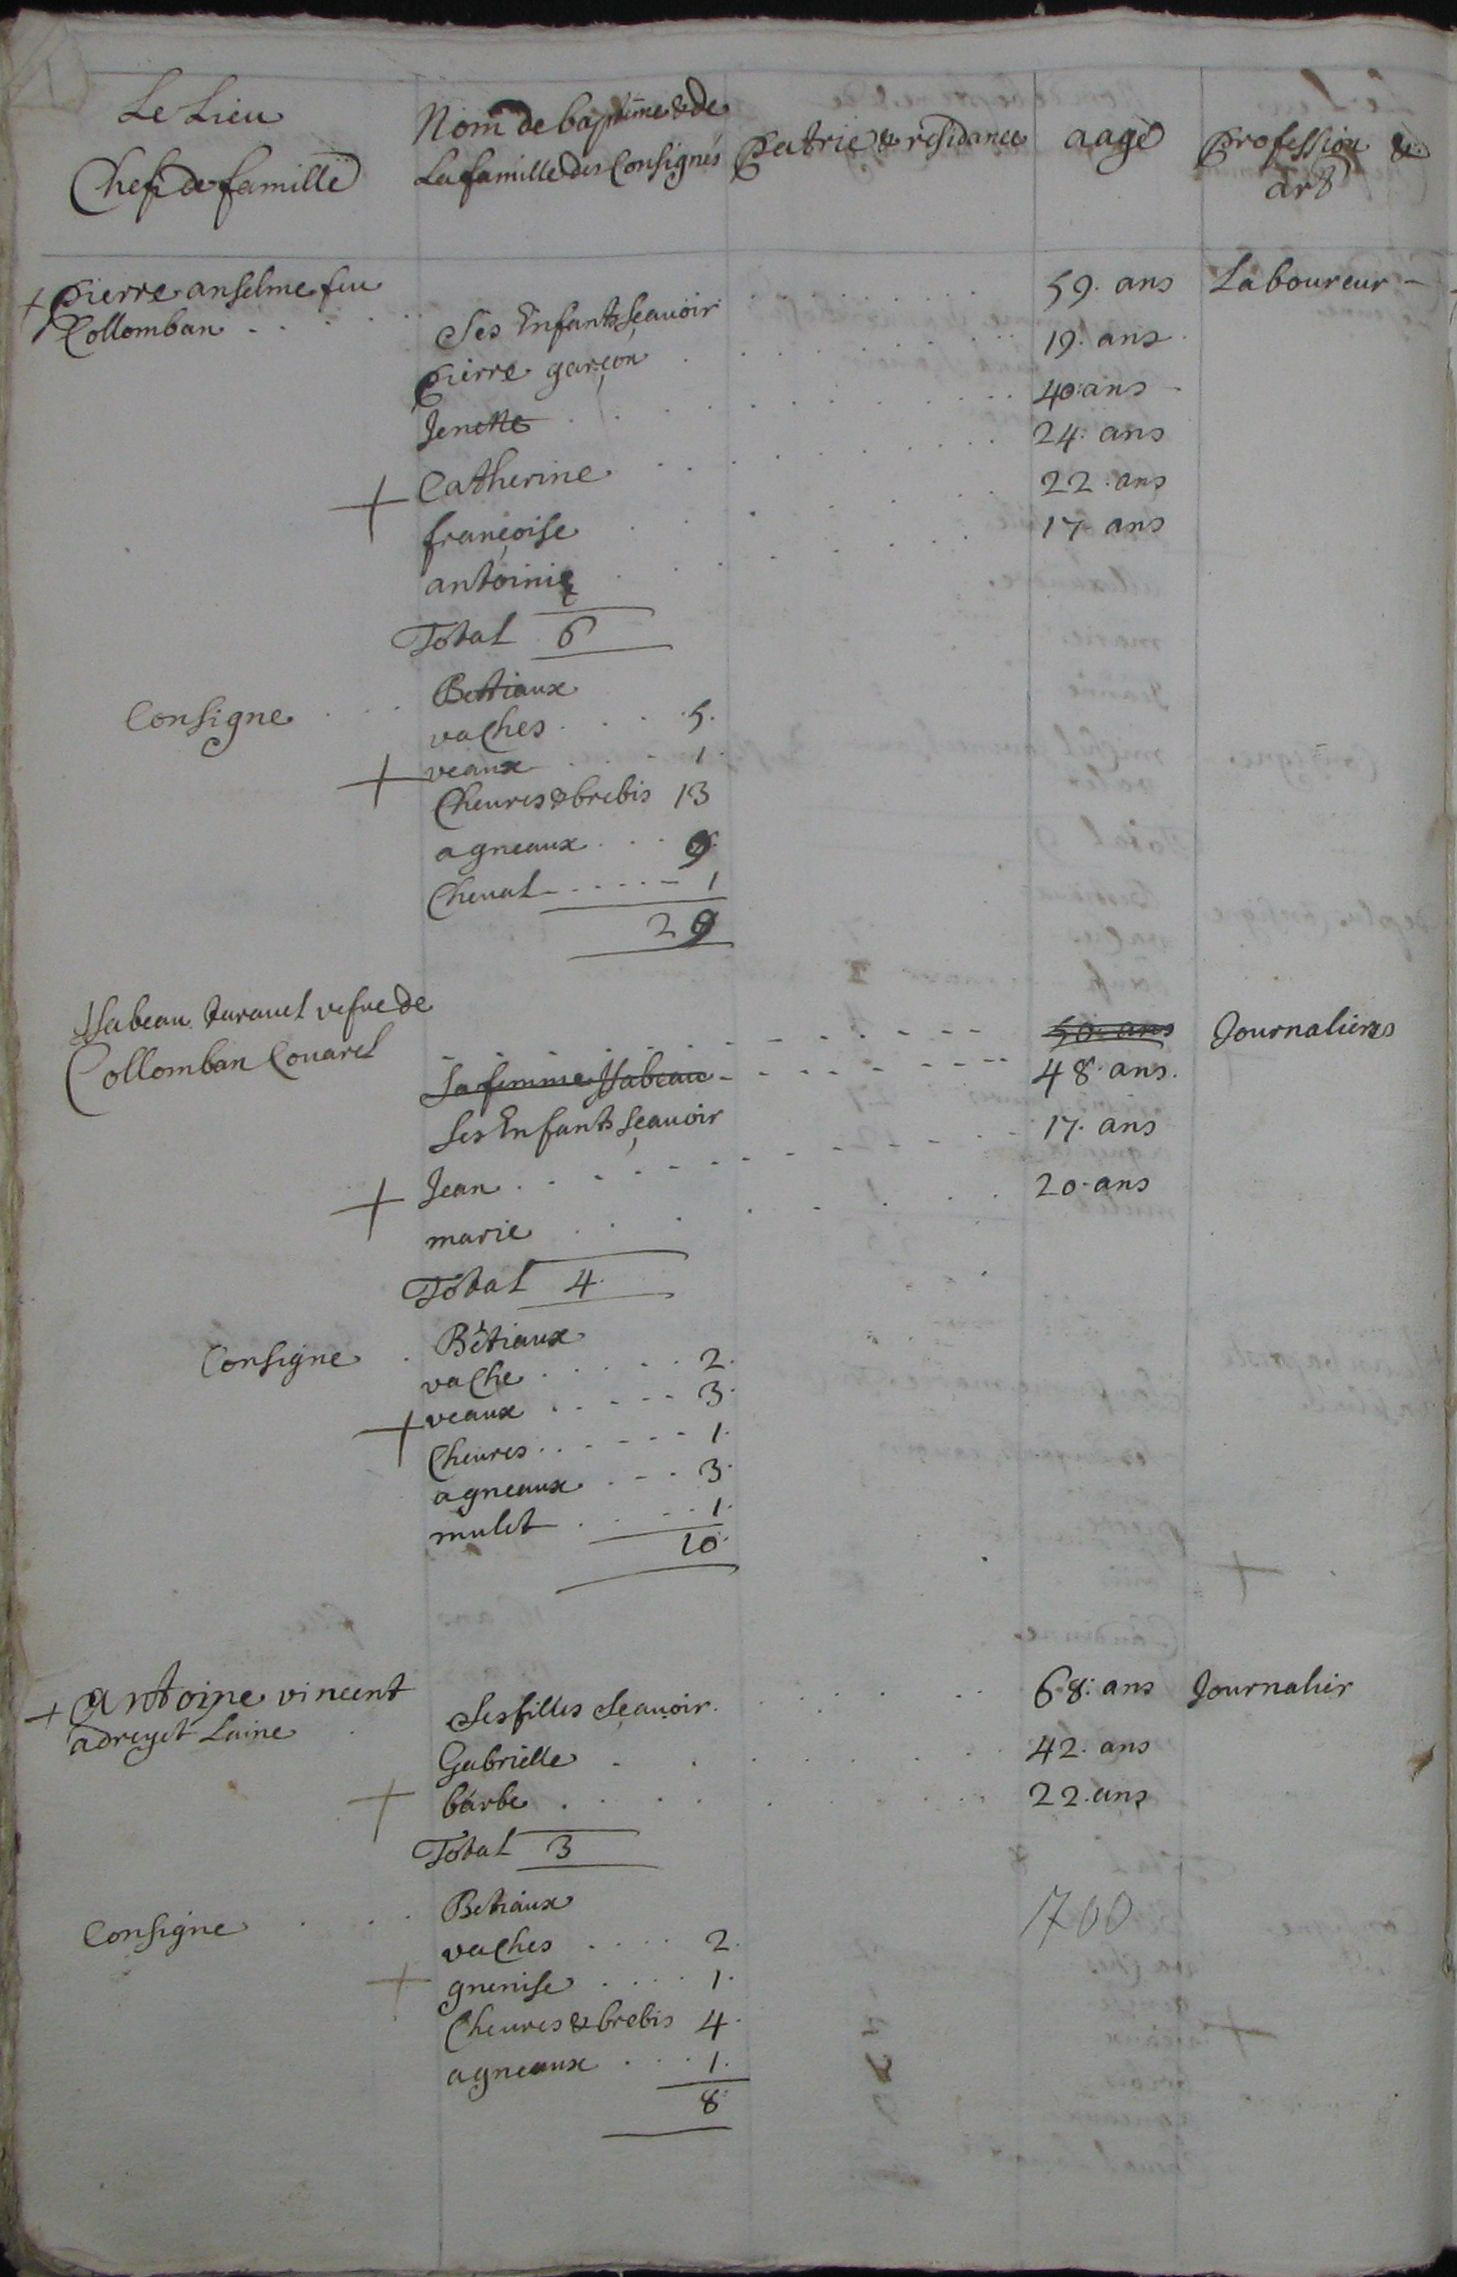 Le Lieu
Chefs de famille
Nom de baptime & de
La famille des Consignés
patrie & residance
aage
profession &
art
+ pierre anselme feu
Collomban
59. ans
Laboureur
Ses Enfants sçauoir
pierre garçon
19. ans
Jenette
40. ans
+ Catherine
24. ans
françoise
22. ans
antoinie
17 ans
Total 6
Consigne
Bettiaux
vaches 5.
+ veaux 1.
Cheures & brebis 13
agneaux 9
Cheual 1
29
Isabeau turauel vefue de
Collomban Couarel
50. ans
Journaliers
Sa femme Isabeau
48. ans.
Ses Enfants sçauoir
+ Jean
17. ans
marie
20. ans
Total 4.
Consigne
Bêtiaux
vache 2.
+ veaux 3.
Cheures 1.
agneaux 3.
mulet 1.
10.
+ antoine vincent
adreyet Laine
68. ans
Journalier
Ses filles sçauoir
Gabrielle
42. ans
+ barbe
22. ans
Total 3
Consigne
Betiaux
1700
vaches 2.
+ gnenise 1.
Cheures & brebis 4.
agneaux 1.
8.